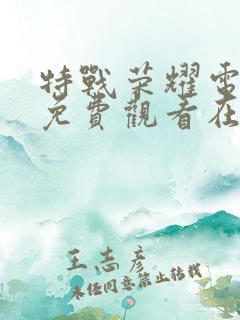 特戰荣耀電
免費觀看在
王志彥
未经同意禁止转载